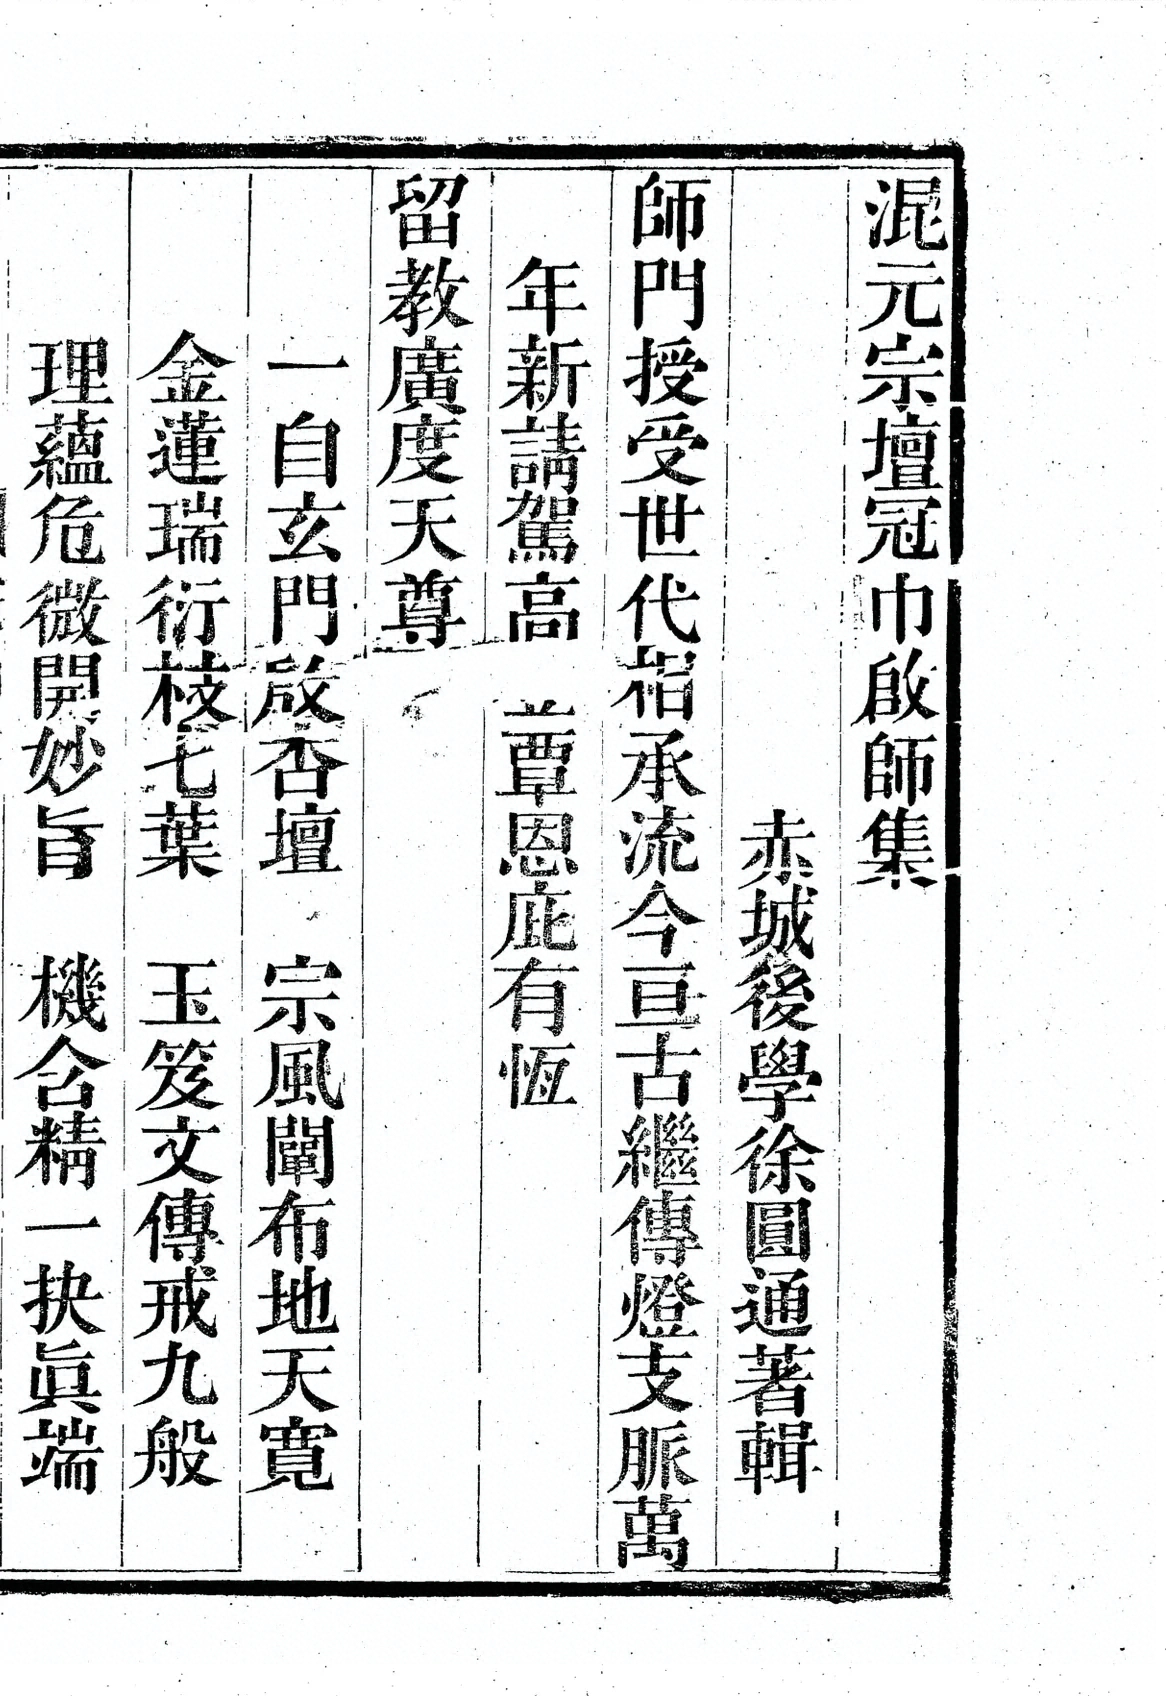 混元宗壇冠巾啟師集
赤城後學徐圓通著輯
師門授受世代相承流今亘古繼傳燈支脈萬
年新請駕高 覃恩庇有恆
留教廣度天尊
一自玄門啟杏壇 宗風闡布地天寬
金蓮瑞衍枝七葉 玉笈文傳戒九般
理蘊危微開妙旨 機含精一抉眞端